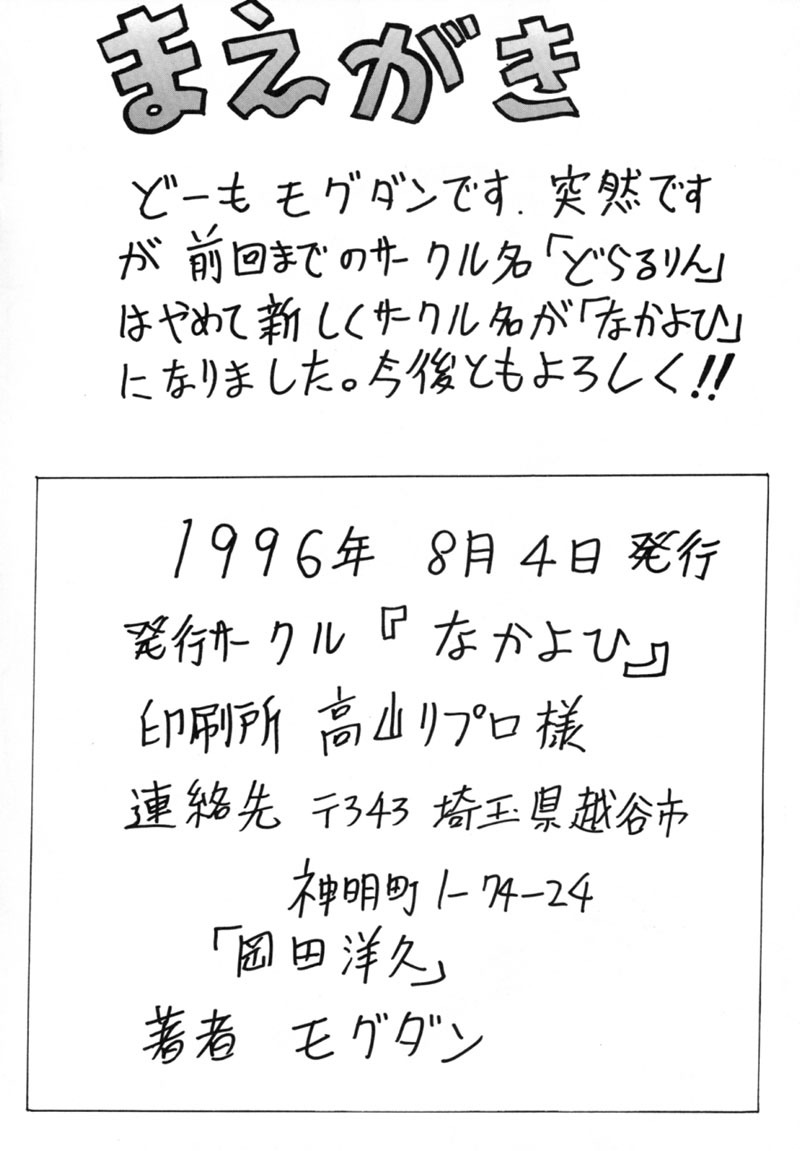 まえがき
どーも モグダンです. 突然です
が 前回までのサークル名「どらるりん」
はやめて新しくサークル名が「なかよひ」
になりました。今後ともよろしく!!
1996年 8月4日発行
発行サークル『なかよひ』
印刷所 高山リプロ様
連絡先 〒343 埼玉県越谷市
神明町1-74-24
「岡田洋久」
著者 モグダン